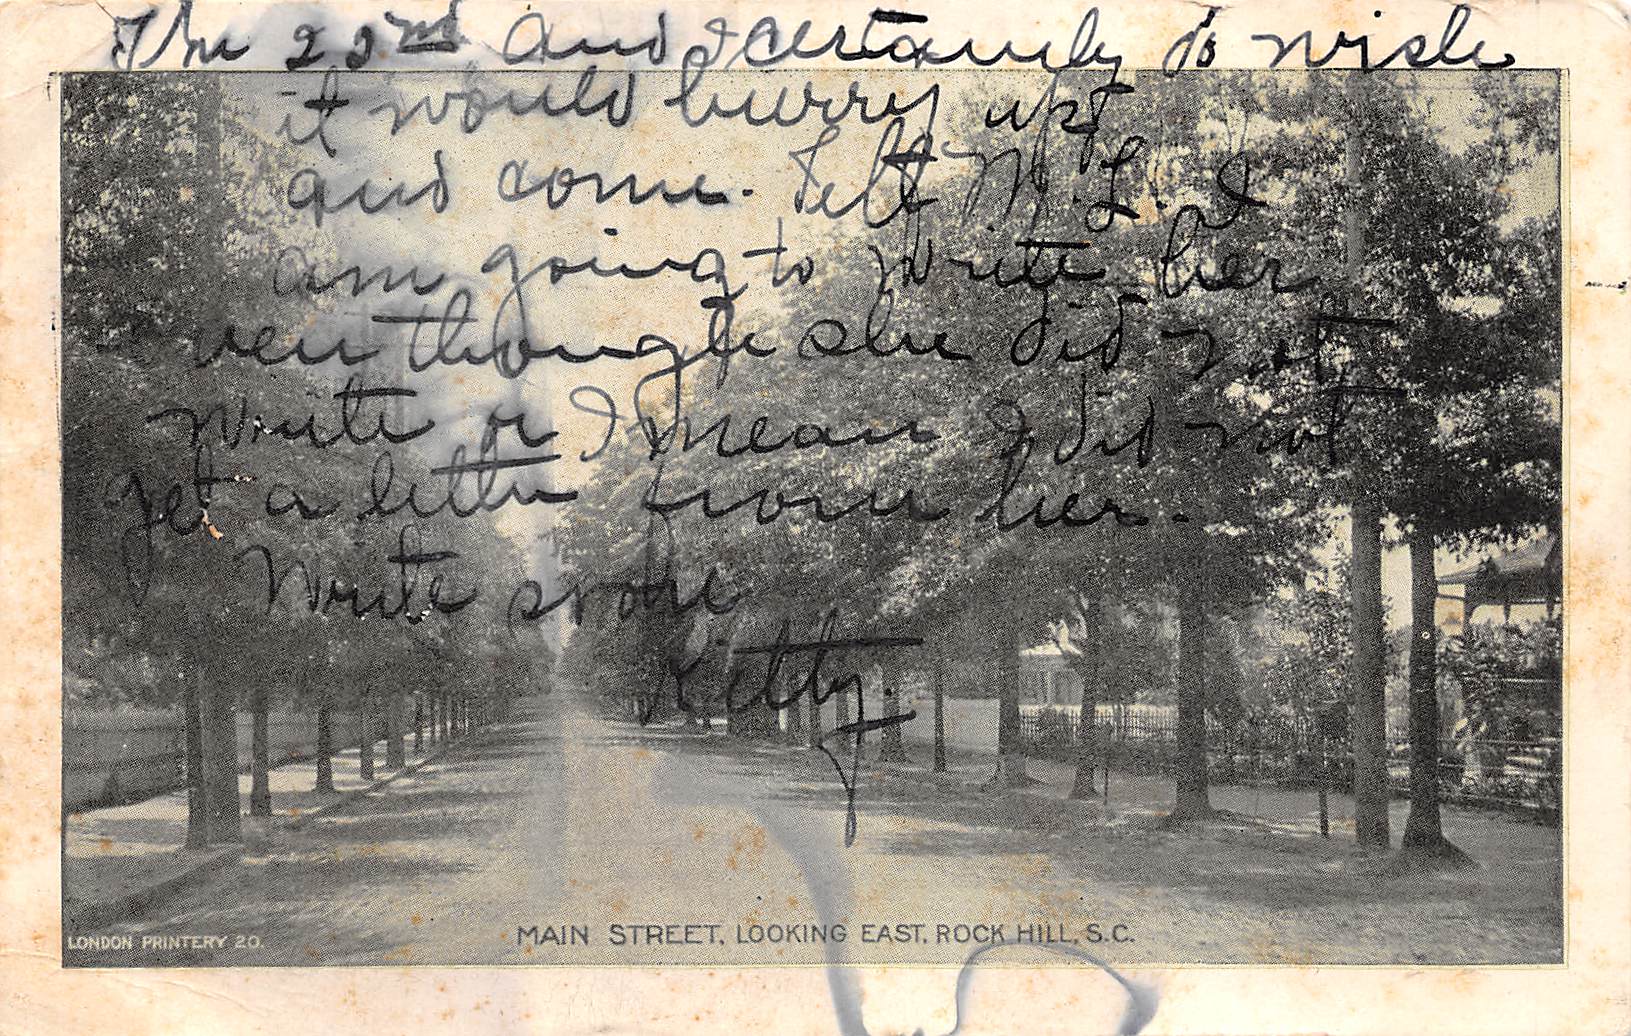 The 22nd and I certainly do wish
it would hurry up
and come. Tell M. L. I
am going to write her
even though she did not
write or I mean I did not
get a letter from her.
Write soon
Kitty.
MAIN STREET, LOOKING EAST, ROCK HILL, S.C.
LONDON PRINTERY 20.